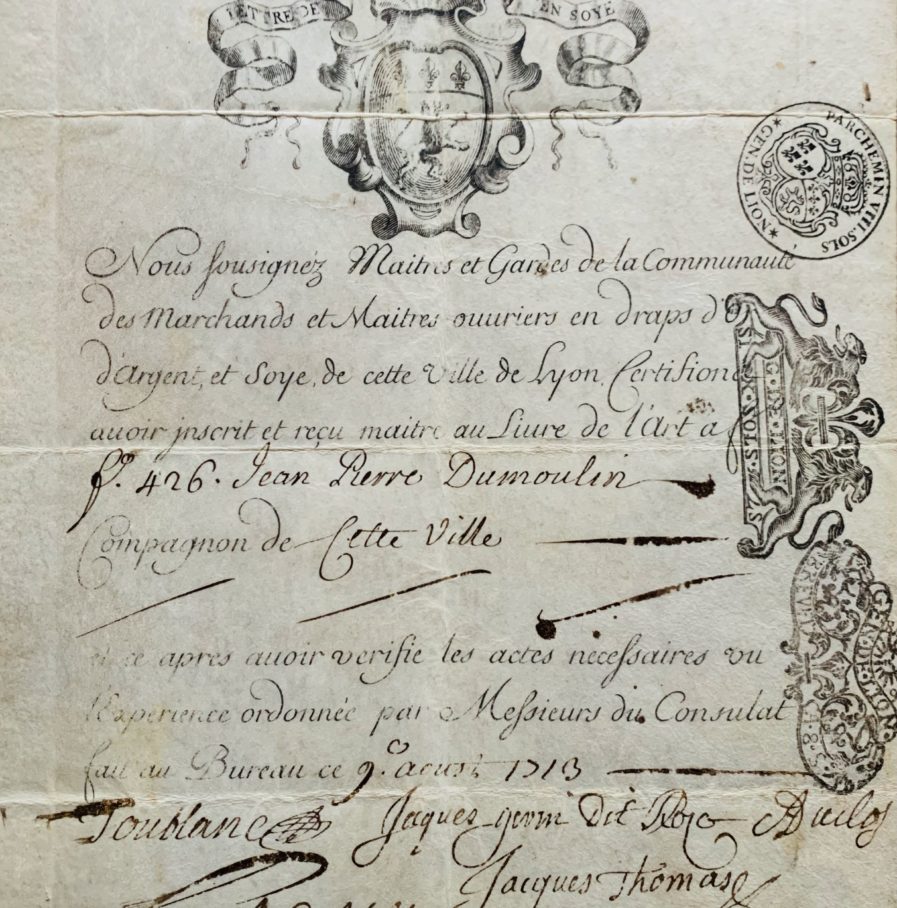 LETTRE DE
EN SOYE
PARCHEMIN VIII. SOLS
GEN. DE LION
Nous sousignez Maitres et Gardes de la Communauté
des Marchands et Maitres ouuriers en draps d'O
d'Argent, et Soye, de cette Ville de Lyon, Certifion
auoir jnscrit et reçu maitre au Liure de l'Art a
f.º 426. Jean Pierre Dumoulin
SIX SOLS
G. DE LION
Compagnon de Cette Ville
et ce apres auoir verifie les actes necessaires vu
l'Experience ordonnée par Messieurs du Consulat
fait au Bureau ce 9.e aoust 1713
Toublanc Jaques Dit Duclos
Jacques Thomas